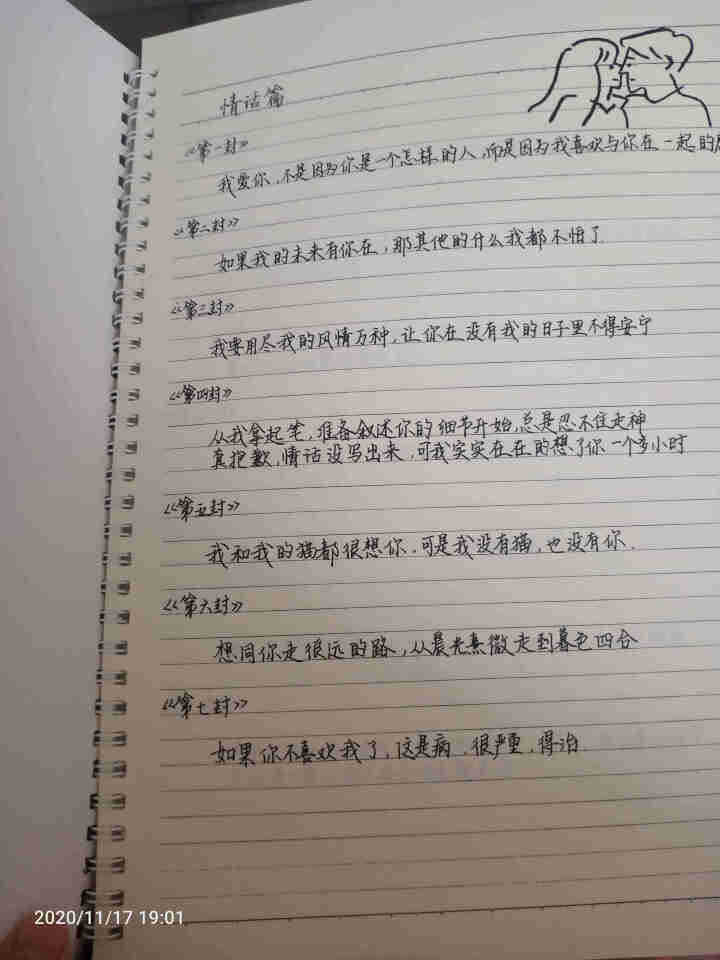 情话篇
《第一封》
我爱你，不是因为你是一个怎样的人，而是因为我喜欢与你在一起的
《第二封》
如果我的未来有你在，那其他的什么我都不怕了.
《第三封》
我要用尽我的风情万种，让你在没有我的日子里不得安宁
《第四封》
从我拿起笔，准备叙述你的细节开始，总是忍不住走神
真抱歉，情话没写出来，可我实实在在的想了你一个多小时
《第五封》
我和我的猫都很想你，可是我没有猫，也没有你.
《第六封》
想同你走很远的路，从晨光熹微走到暮色四合
《第七封》
如果你不喜欢我了，这是病，很严重，得治
2020/11/17 19:01